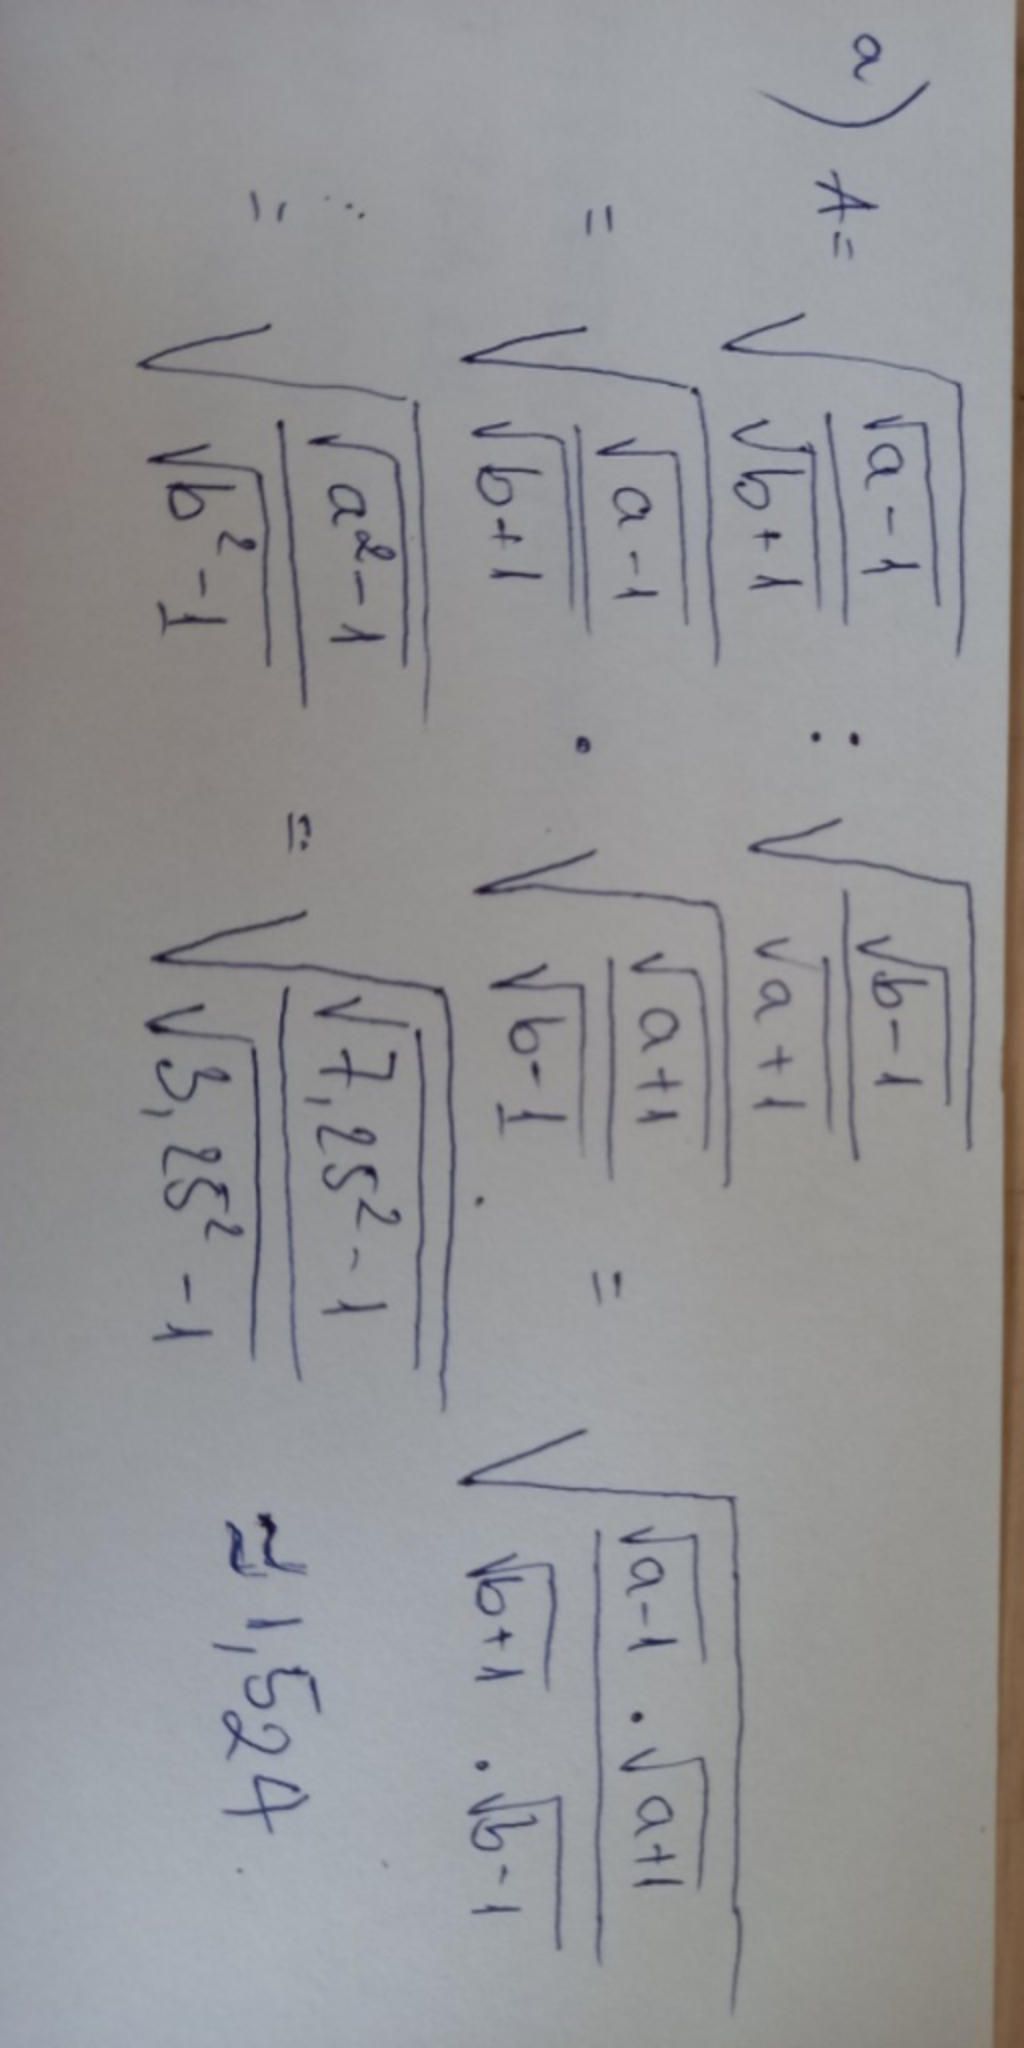 a) A = √(√(a-1)/√(b+1)) : √(√(b-1)/√(a+1))
= √(√(a-1)/√(b+1)) · √(√(a+1)/√(b-1)) = √((√(a-1) · √(a+1))/(√(b+1) · √(b-1)))
= √(√(a²-1)/√(b²-1)) = √(√(7,25²-1)/√(3,25²-1)) ≈ 1,524